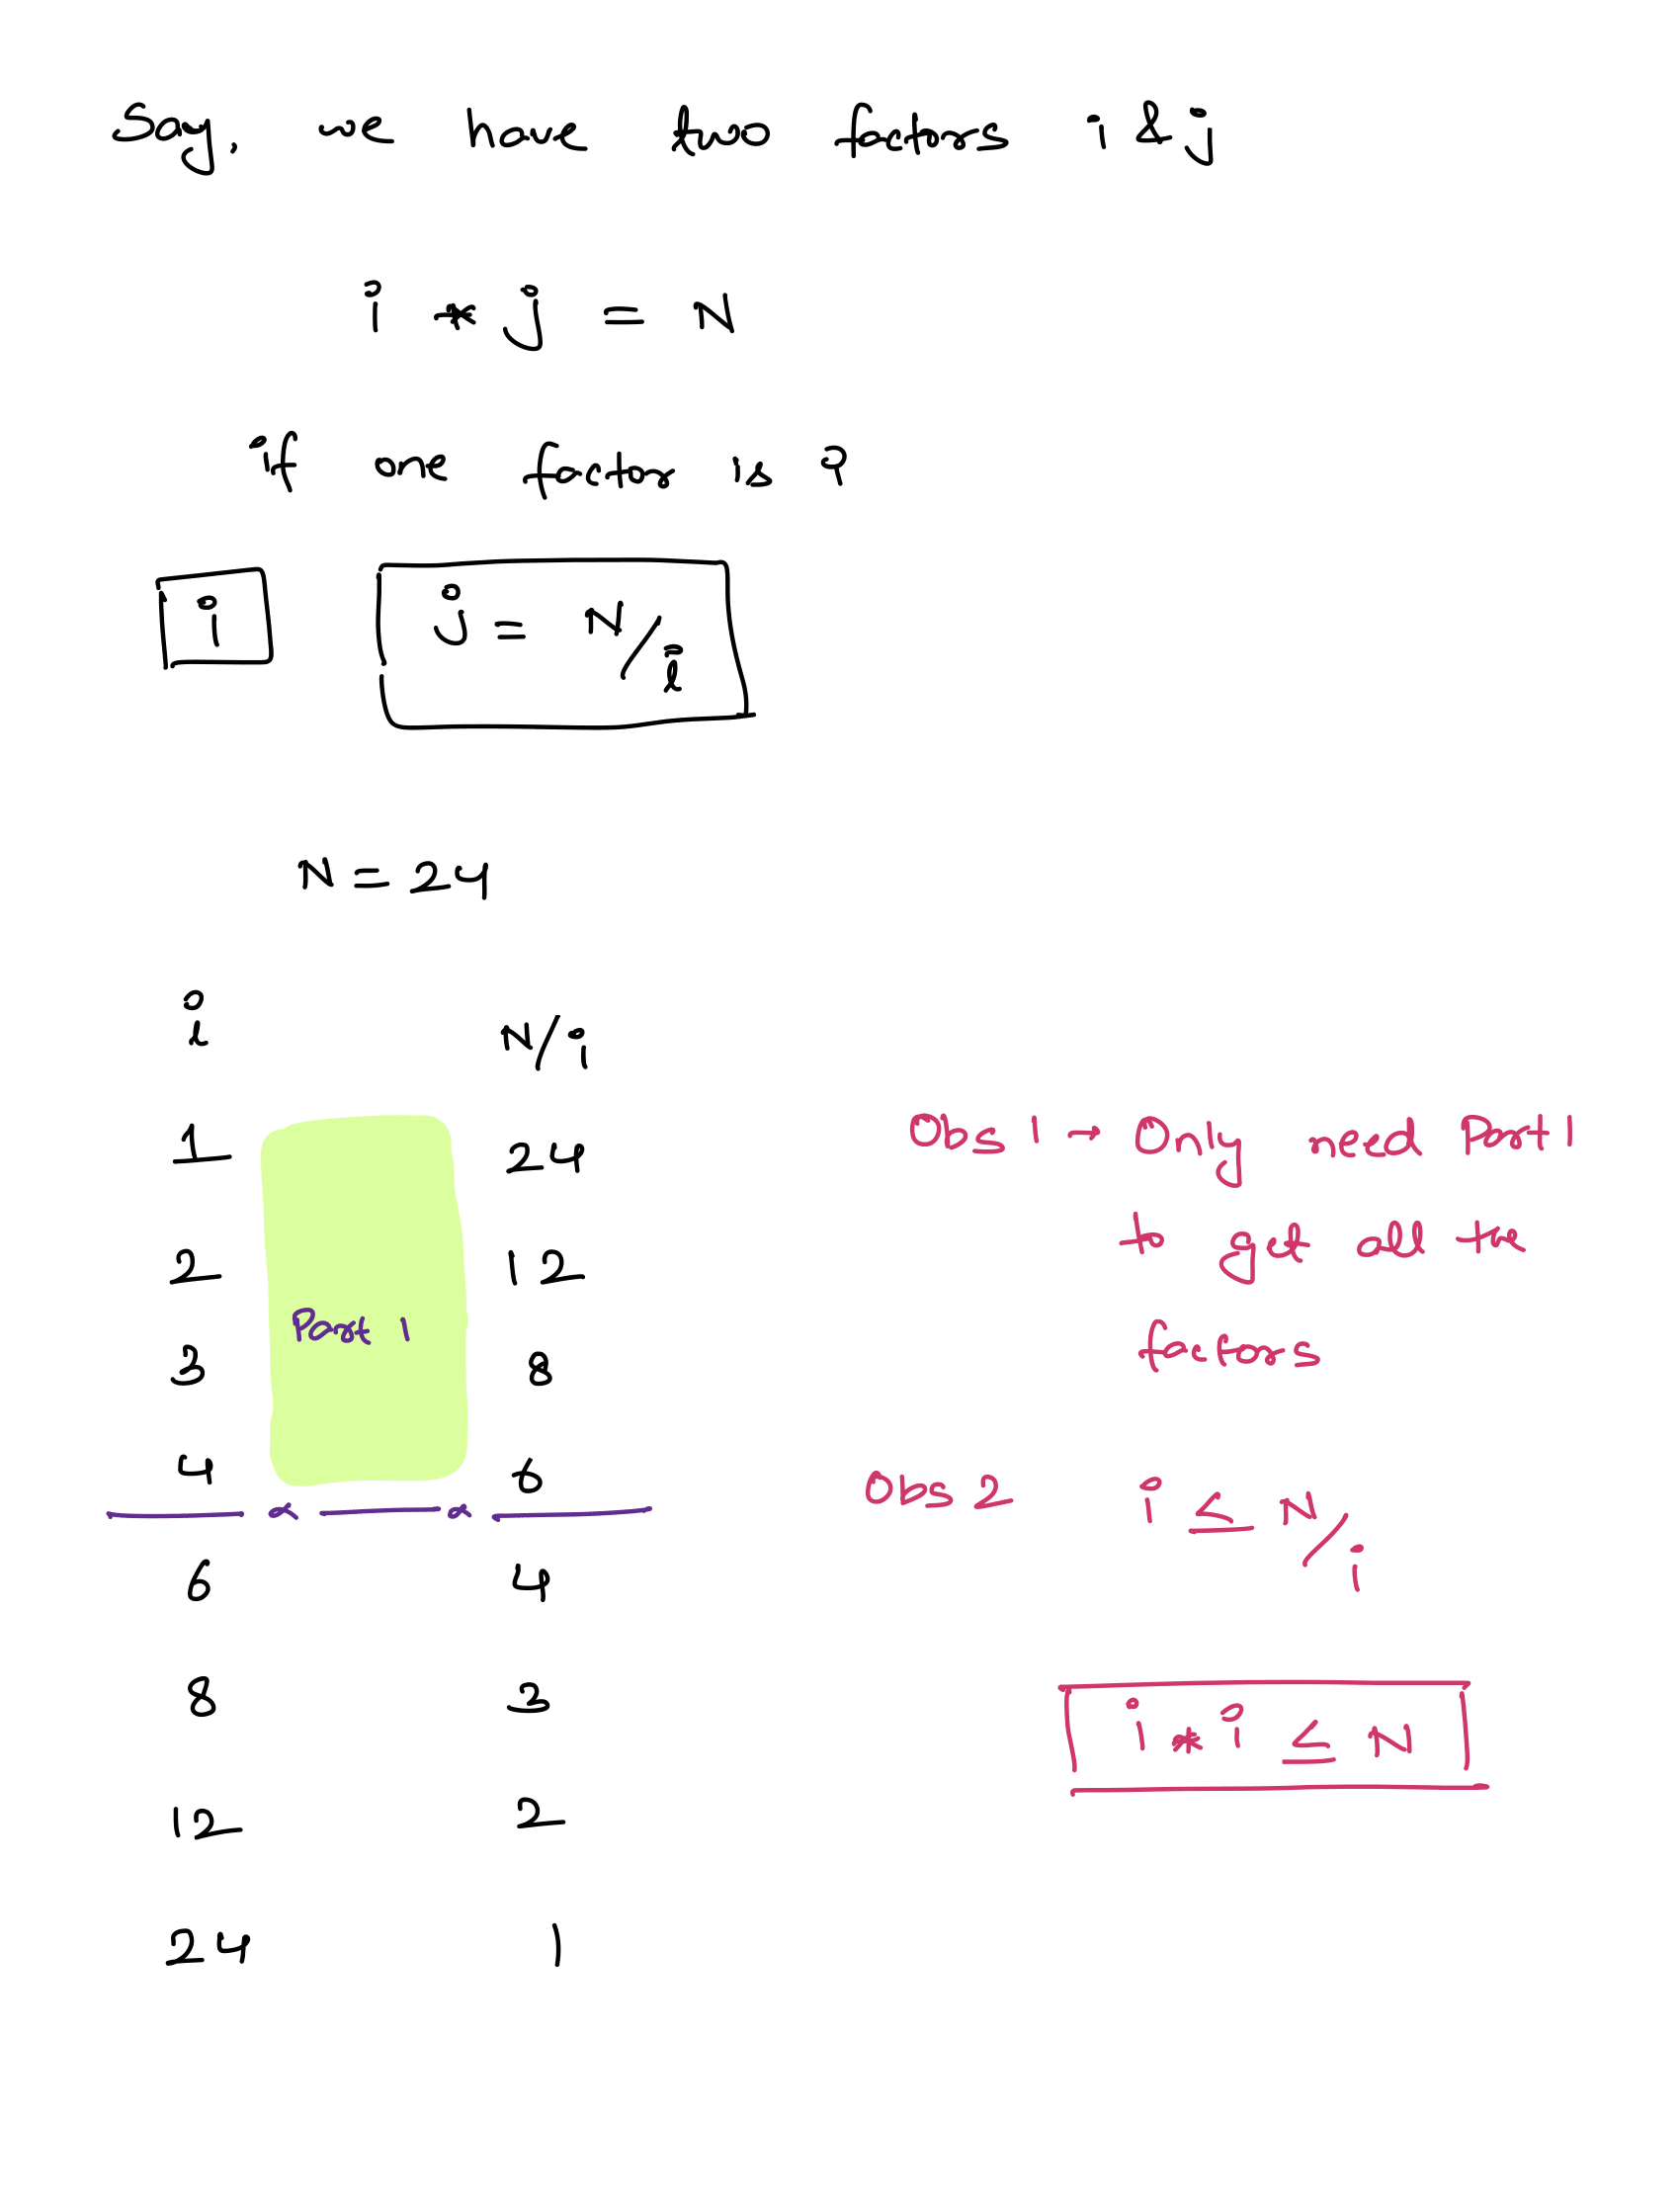 Say, we have two factors i & j
i * j = N
if one factor is i
i j = N/i
N = 24
i N/i
1 24
2 12
Part 1
3 8
4 6
6 4
8 3
12 2
24 1
Obs 1 → Only need Part 1
to get all the
factors
Obs 2 i ≤ N/i
i * i ≤ N